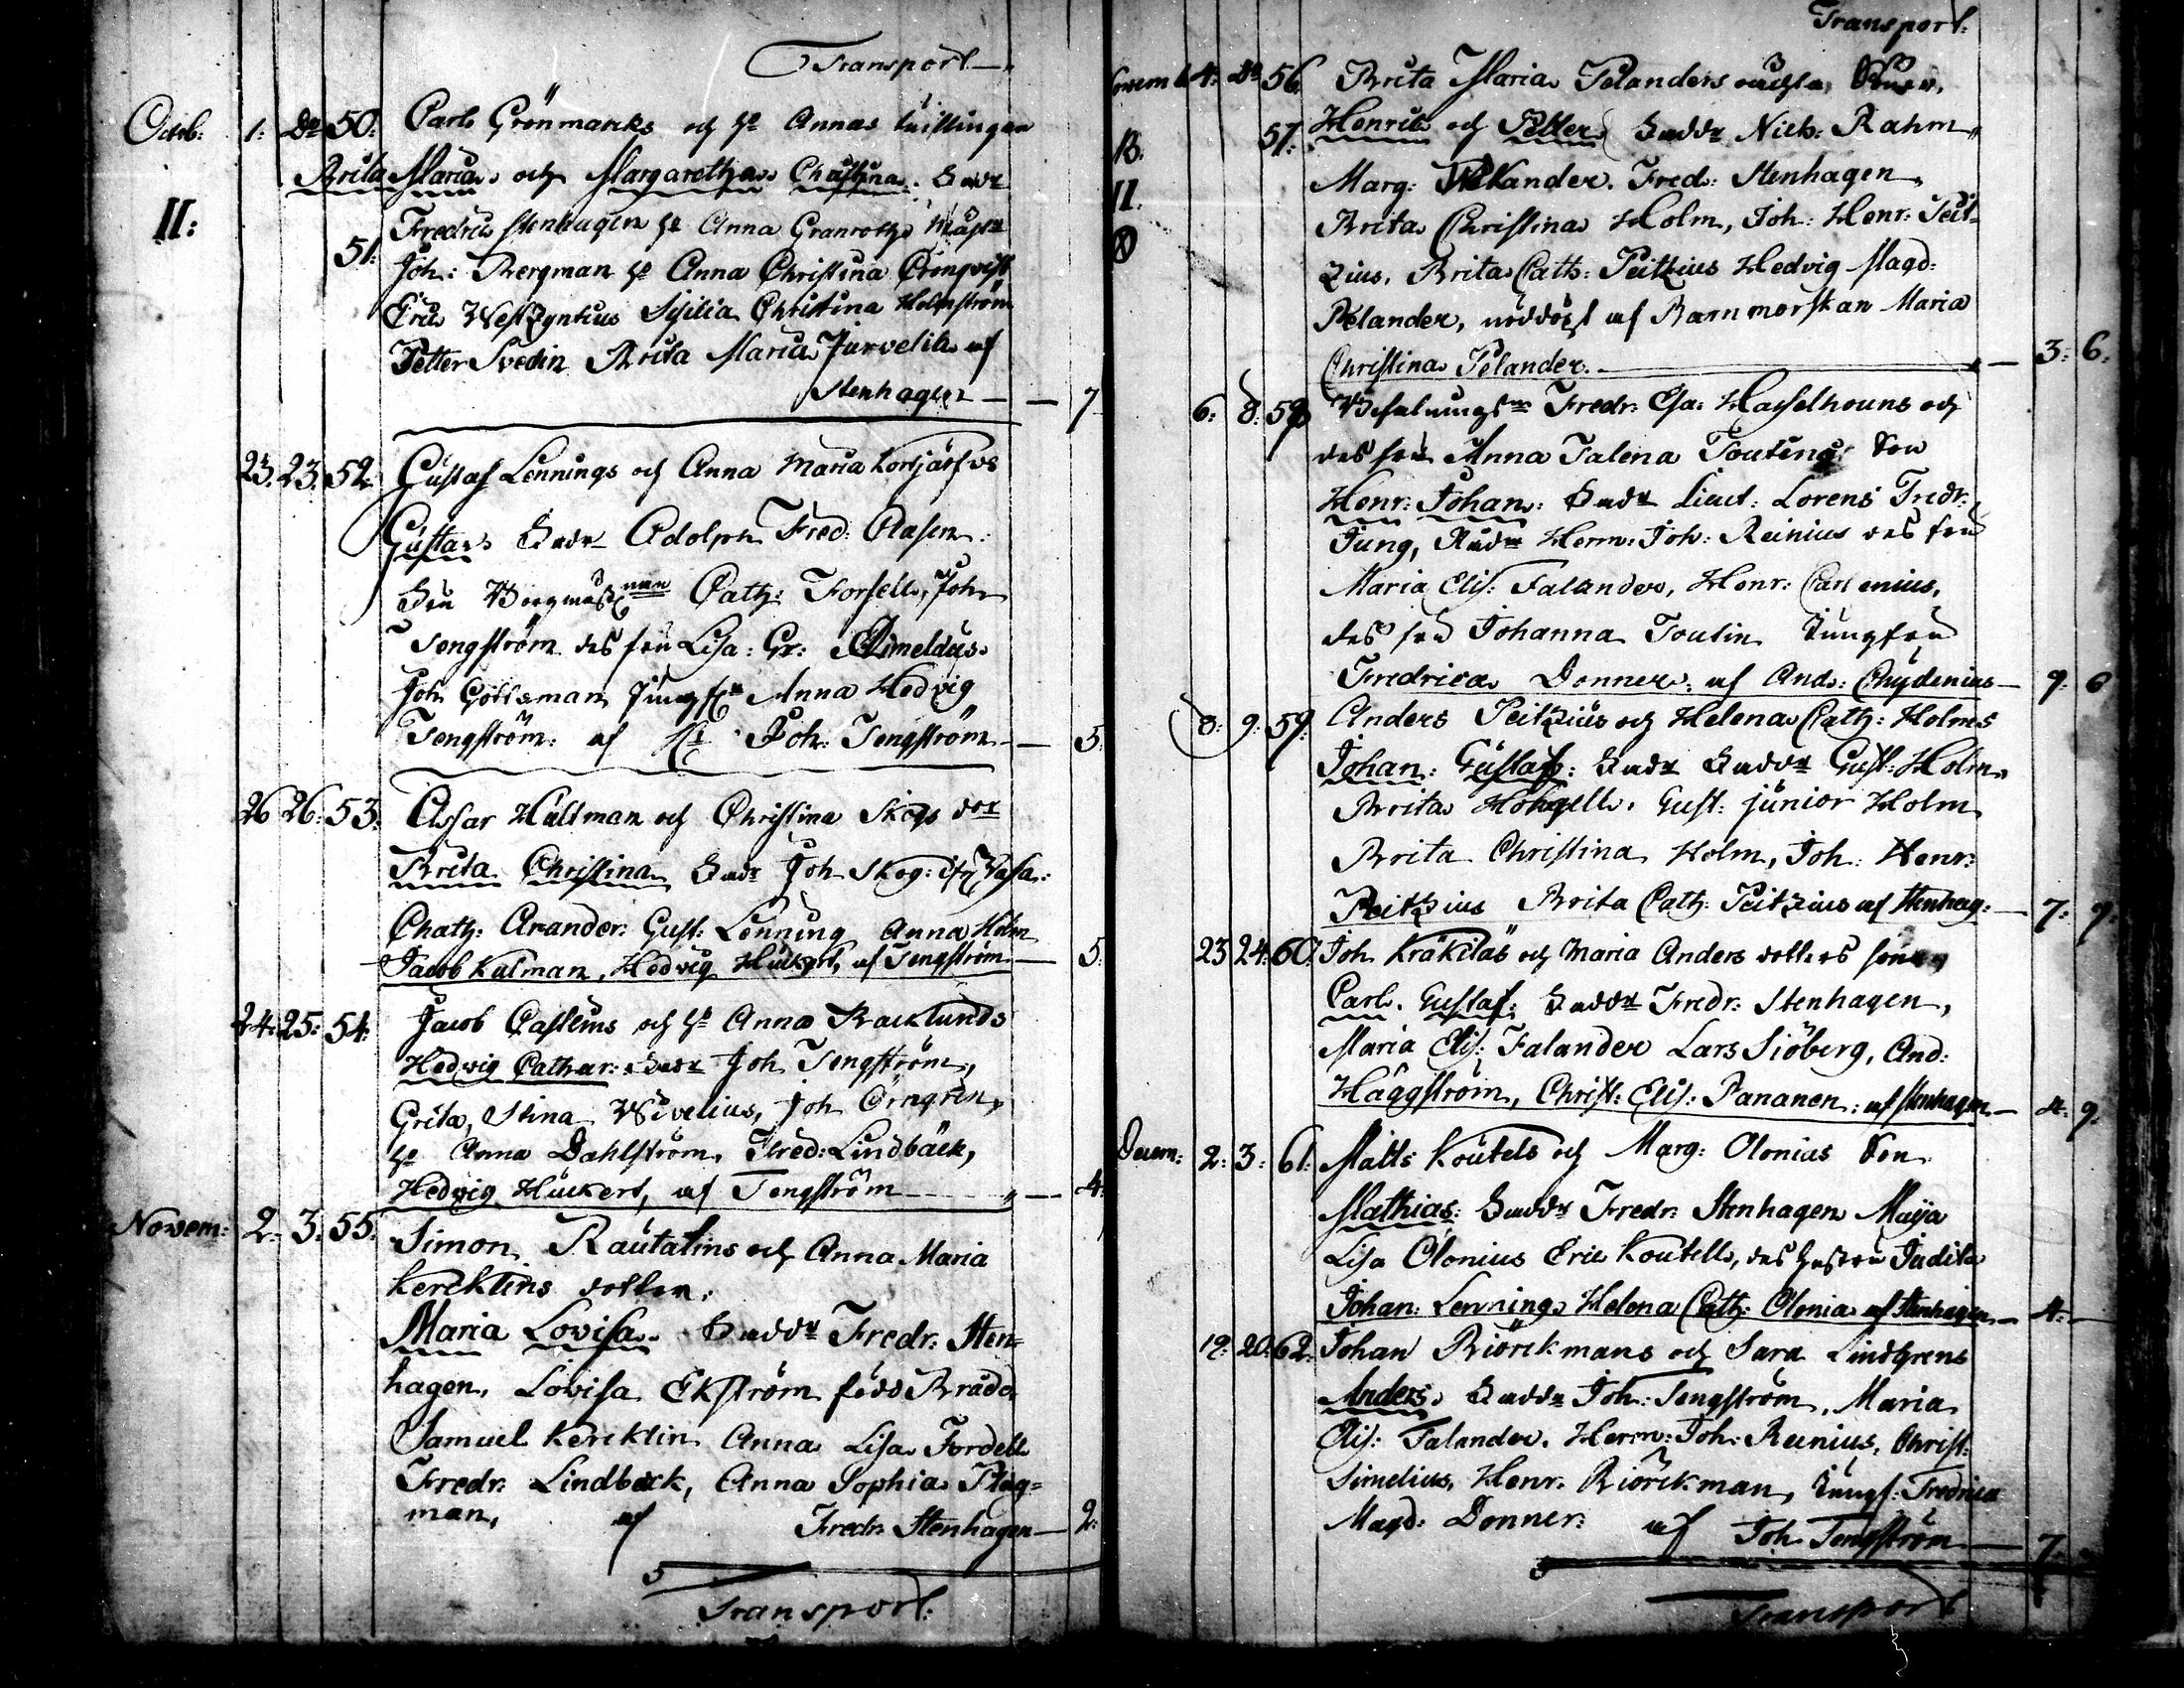 Transport
Octob: 1: Do 50: Carl Grönmarks och h: Annas tvillingar
Brita Maria och Margaretha Christina. Fadd:
II: Fredric Stenhagen h: Anna Granroth,
51: Joh: Bergman h: Anna Christina Cronqvist
Eric Christina Holmström
Petter Svedin Brita Maria Järvelin af
Stenhagen — 7
23. 23. 52. Gustaf Lennings och Anna Maria
Gustav Fadr Adolph Fred: Clasen
Fru Cath: Forsell, Joh
Tengström des fru Lisa: Gr:
Joh Gottsman Jungfr Anna Hedvig
Tengström: af Joh: Tengström — 5.
26 26: 53. Hältman och Christina Skogs dor
Brita Christina Fadr Joh Skog:
Chath: Arander: Gust: Lenning Anna Holm
Jacob Kalman, Hedvig Hückert, af Tengström — 5.
24: 25: 54. Jacob Castens och h: Anna Backlunds
Hedvig Cathar: Fadr Joh Tengström,
Greta, Stina Wivelius, Joh Örngren,
h: Anna Dahlström, Fred: Lindbäck,
Hedvig Hückert, af Tengström — 4.
Novem: 2: 3: 55. Simon Rautalins och Anna Maria
Kerektins dotter.
Maria Lovisa. Faddr Fredr: Sten=
hagen, Lovisa Ekström född Bråda,
Samuel Kerektin Anna Lisa Fordell
Fredr: Lindbäck, Anna Sophia Plag=
man, af Fredr: Stenhagen — 2:
Transport:
Transport:
4: Do 56. Brita Maria Pelanders oächta Söner,
B. 57. Henric och Petter Faddr Nich: Rahm
II. Marg: Pelander. Fred: Stenhagen
Brita Christina Holm, Joh: Henr: Peit-
zius, Brita Cath: Peitzius Hedvig Magd:
Pelander, nöddöpt af Barnmorskan Maria
Christina Pelander. — 3: 6.
6: 8: 58 Fredr: Esa: Hasselhouns och
des fru Anna Talena Son
Henr: Johan: Fadr Lieut: Lorens Fredr:
Jung, Rådm Herm: Joh: Reinius des fru
Maria Elis: Falander, Henr: Carlenius,
des fru Johanna Toutin Jungfru
Fredrica Donner: af And: Chydenius — 9: 6
8: 9: 59. Anders Peitzius och Helena Cath: Holms
Johan: Gustaf: Fadr Faddr Gust: Holm,
Brita Gust: junior Holm
Brita Christina Holm, Joh: Henr:
Peitzius Brita Cath: Peitzius af Stenhag: — 7: 9:
23 24: 60. Joh Kräkiläs och Maria Anders dotters son
Carl. Gustaf: Faddr Fredr: Stenhagen,
Maria Elis: Falander Lars Siöberg, And:
Häggström, Christ: Elis: Pananen: af Stenhagen — 4: 9:
Decem: 2: 3: 61. Matts Koutels och Marg: Olonias Son
Mathias: Faddr Fredr: Stenhagen Maja
Lisa Olonius Eric Koutell, des hustru Judita
Johan: Lenning, Helena Cath: Olonia af Stenhagen — 4.
19: 20: 62. Johan Biörckmans och Sara Lindgrens
Anders. Faddr Joh: Tengström, Maria
Elis: Falander. Herm: Joh: Reinius, Christ:
Simelius, Henr. Biörckman, Jungf: Fredrica
Magd: Donner: af Joh Tengström — 7:
Transport